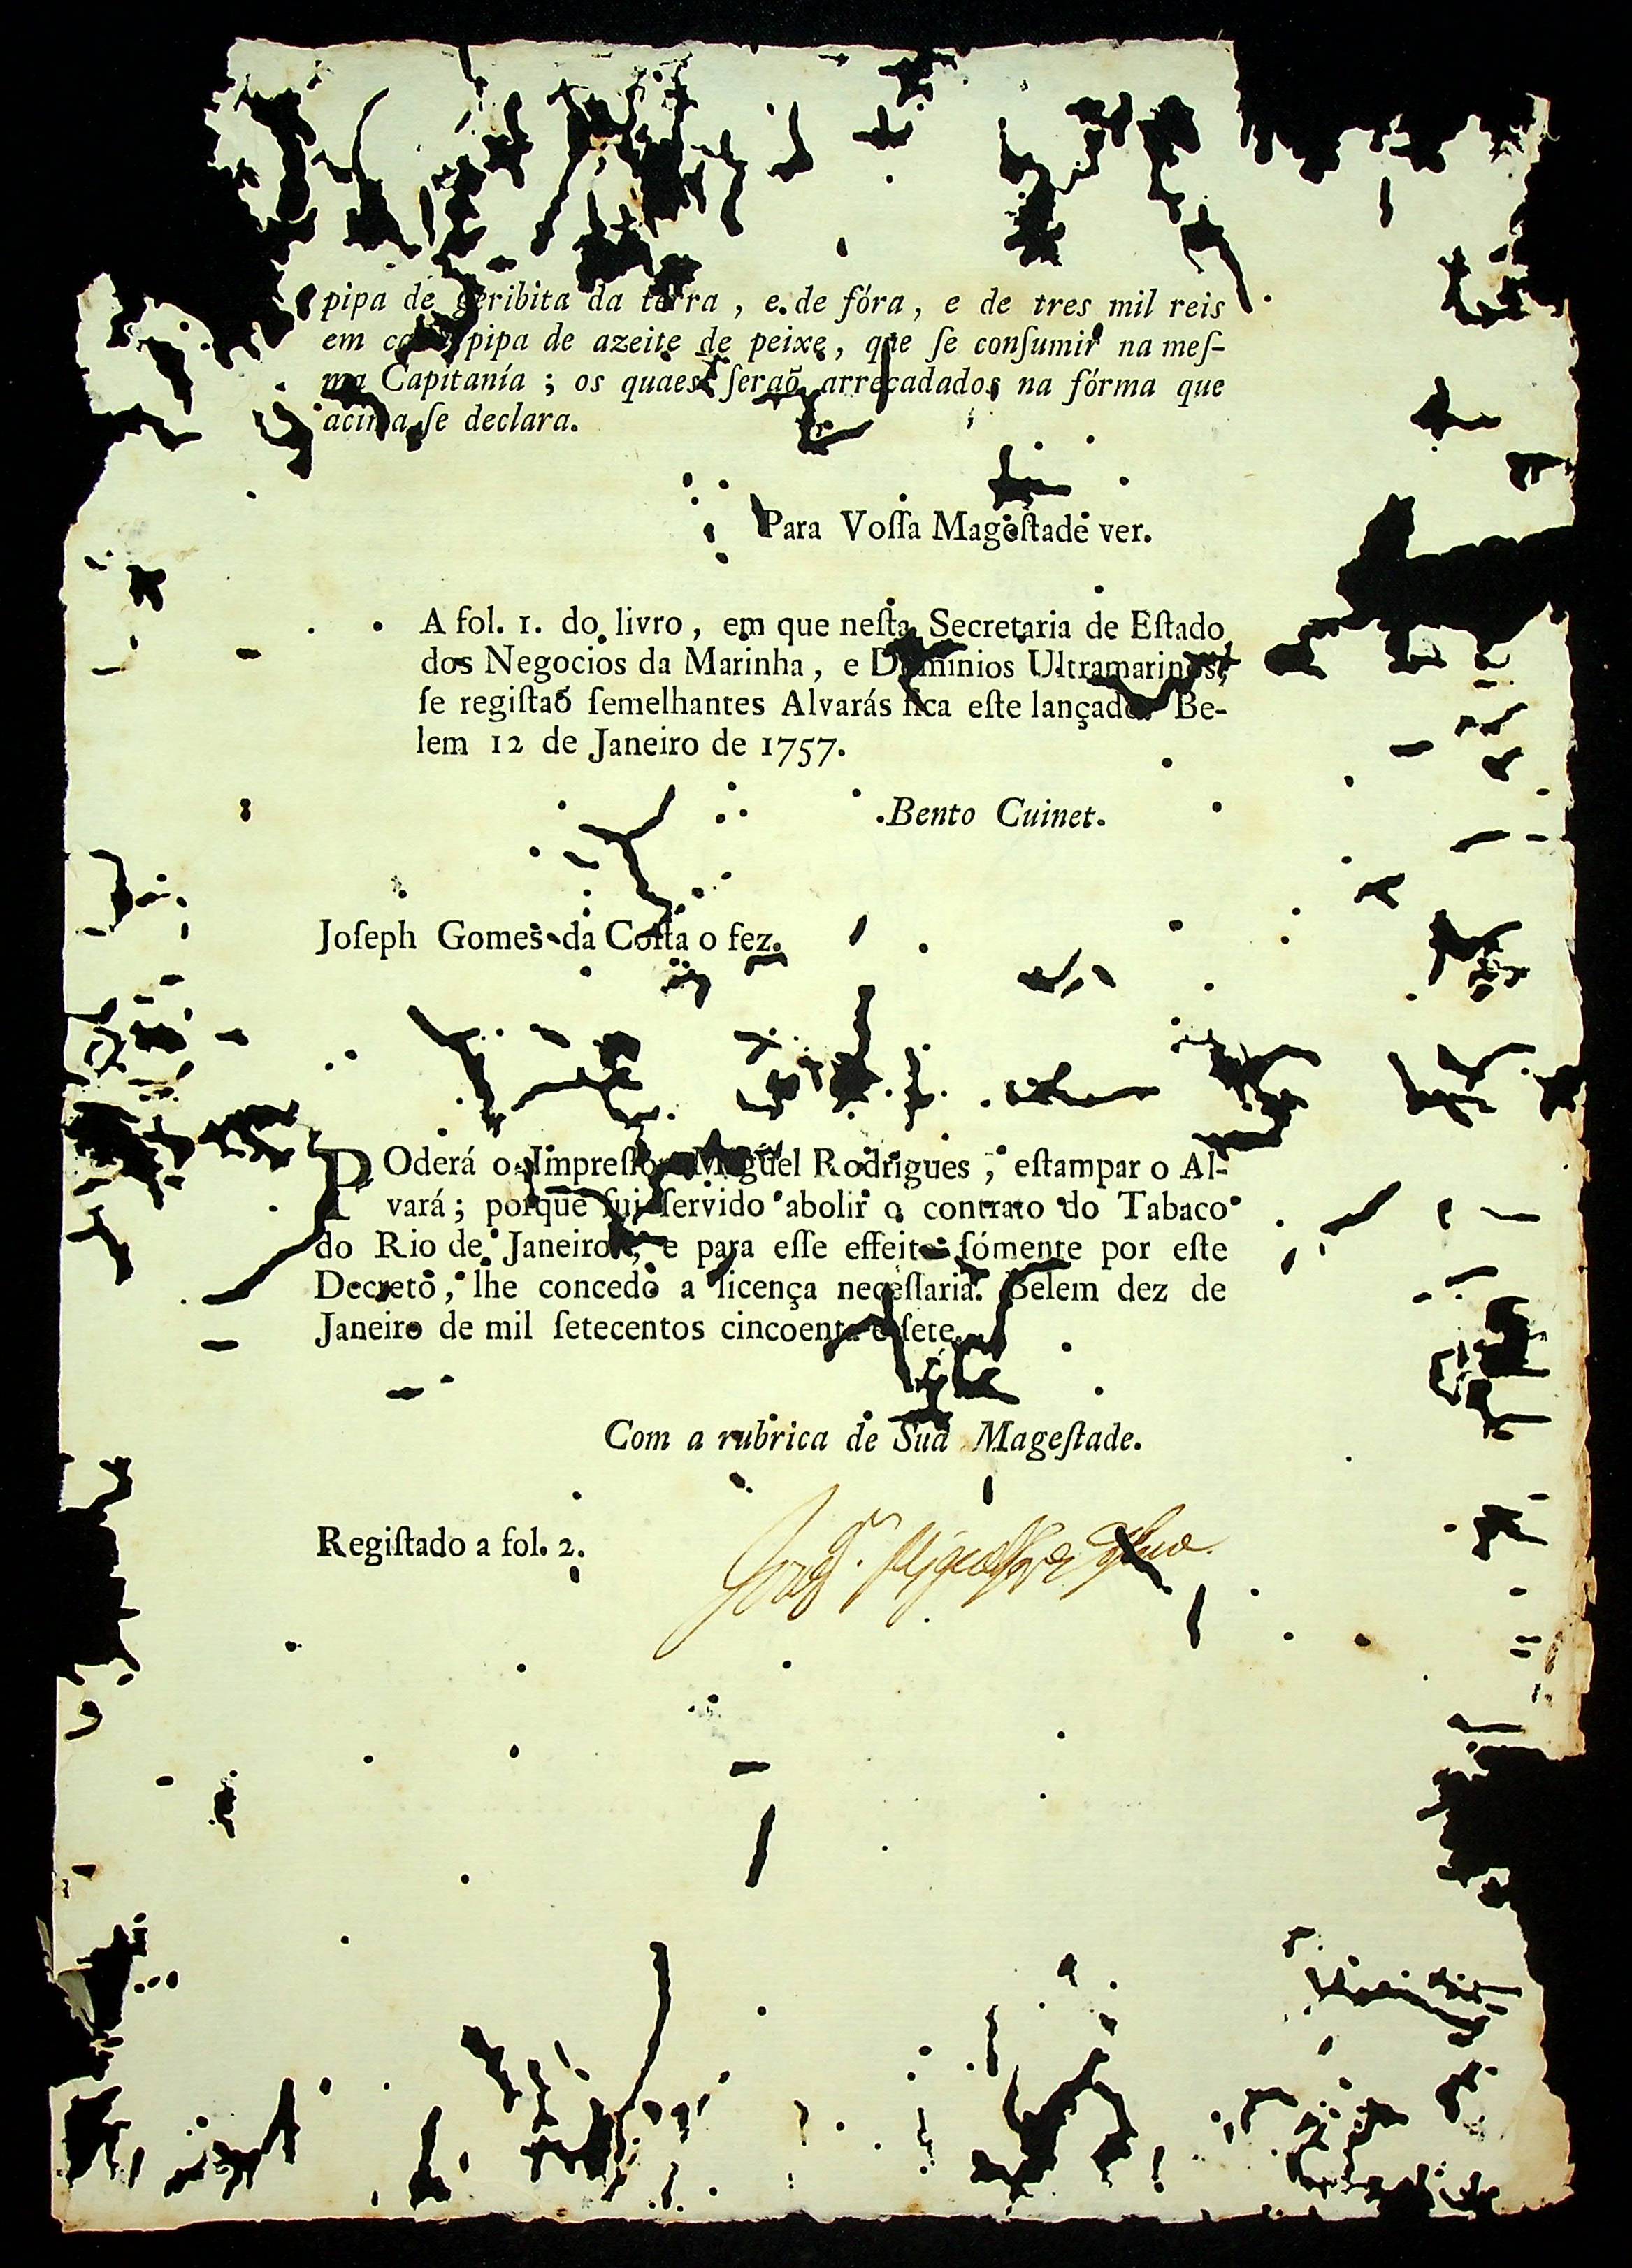 pipa de geribita da terra, e de fóra, e de tres mil reis
em cada pipa de azeite de peixe, que ſe conſumir na meſ-
ma Capitanía; os quaes ſeraõ arrecadados na fórma que
acima ſe declara.
Para Voſſa Mageſtade ver.
A fol. 1. do livro, em que neſta Secretaria de Eſtado
dos Negocios da Marinha, e Dominios Ultramarinos,
ſe regiſtaõ ſemelhantes Alvarás fica eſte lançado. Be-
lem 12 de Janeiro de 1757.
Bento Cuinet.
Joſeph Gomes da Coſta o fez.
POderá o Impreſſor Miguel Rodrigues, eſtampar o Al-
vará; porque fui ſervido abolir o contrato do Tabaco
do Rio de Janeiro, e para eſſe effeito ſómente por eſte
Decreto, lhe concedo a licença neceſſaria. Belem dez de
Janeiro de mil ſetecentos cincoenta e ſete.
Com a rubrica de Sua Mageſtade.
Regiſtado a fol. 2.